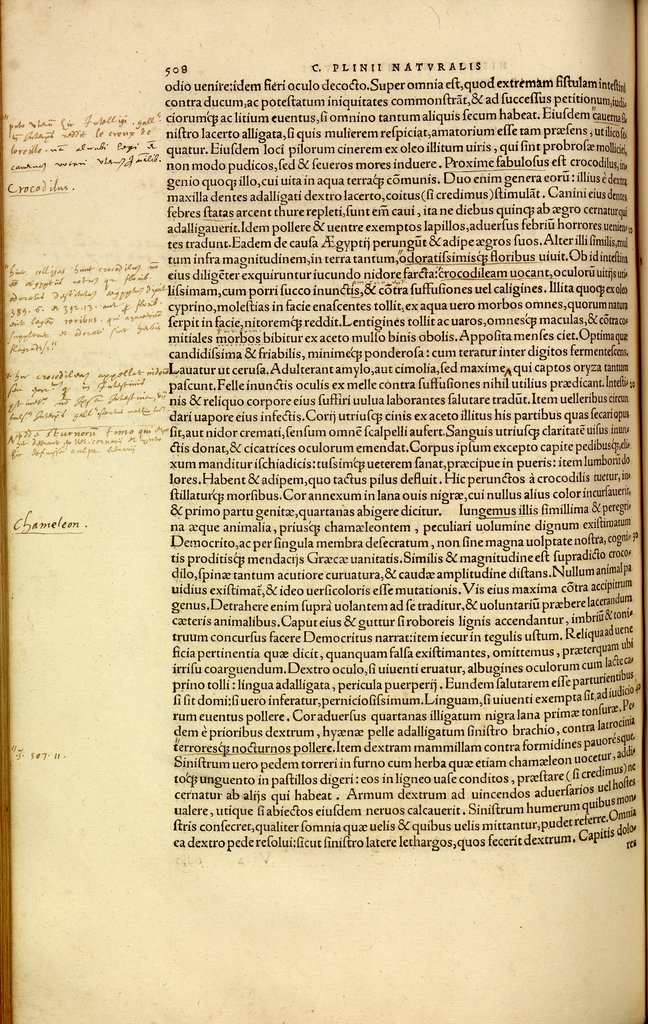 508 C. PLINII NATVRALIS
odio uenire: idem fieri oculo decocto. Super omnia est, quod extremam fistulam intestini
contra ducum, ac potestatum iniquitates commonstrãt, & ad successus petitionum, iudi/
ciorumq̃ ac litium euentus, si omnino tantum aliquis secum habeat. Eiusdem cauerna si
nistro lacerto alligata, si quis mulierem respiciat, amatorium esse tam præsens, ut ilico se
quatur. Eiusdem loci pilorum cinerem ex oleo illitum uiris, qui sint probrosæ mollitiei,
non modo pudicos, sed & seueros mores induere. Proxime fabulosus est crocodilus, in/
genio quoq̃ illo, cui uita in aqua terraq̃ cõmunis. Duo enim genera eorũ: illius è dextra
maxilla dentes adalligati dextro lacerto, coitus (si credimus) stimulãt. Canini eius dentes
febres statas arcent thure repleti, sunt em̃ caui, ita ne diebus quinq̃ ab ægro cernatur qui
adalligauerit. Idem pollere & uentre exemptos lapillos, aduersus febriũ horrores uenien/
tes tradunt. Eadem de causa Ægyptij perungũt & adipe ægros suos. Alter illi similis, mul
tum infra magnitudinem, in terra tantum, odoratissimisq̃ floribus uiuit. Ob id intestina
eius diligẽter exquiruntur iucundo nidore farcta: crocodileam uocant, oculorũ uitijs uti/
lissimam, cum porri succo inunctis, & cõtra suffusiones uel caligines. Illita quoq̃ ex oleo
cyprino, molestias in facie enascentes tollit, ex aqua uero morbos omnes, quorum natura
serpit in facie, nitoremq̃ reddit. Lentigines tollit ac uaros, omnesq̃ maculas, & cõtra co/
mitiales morbos bibitur ex aceto mulso binis obolis. Apposita menses ciet. Optima quæ
candidissima & friabilis, minimeq̃ ponderosa: cum teratur inter digitos fermentescens.
Lauatur ut cerusa. Adulterant amylo, aut cimolia, sed maxime qui captos oryza tantum
pascunt. Felle inunctis oculis ex melle contra suffusiones nihil utilius prædicant. Intesti/
nis & reliquo corpore eius suffiri uulua laborantes salutare tradũt. Item uelleribus circun
dari uapore eius infectis. Corij utriusq̃ cinis ex aceto illitus his partibus quas secari opus
sit, aut nidor cremati, sensum omnẽ scalpelli aufert. Sanguis utriusq̃ claritatẽ uisus inun/
ctis donat, & cicatrices oculorum emendat. Corpus ipsum excepto capite pedibusq̃, eli/
xum manditur ischiadicis: tussimq̃ ueterem sanat, præcipue in pueris: item lumborũ do
lores. Habent & adipem, quo tactus pilus defluit. Hic perunctos à crocodilis tuetur, in/
stillaturq̃ morsibus. Cor annexum in lana ouis nigræ, cui nullus alius color incursauerit,
& primo partu genitæ, quartanas abigere dicitur. Iungemus illis simillima & peregri/
na æque animalia, priusq̃ chamæleontem, peculiari uolumine dignum existimatum
Democrito, ac per singula membra desecratum, non sine magna uolptate nostra, cogni/
tis proditisq̃ mendacijs Græcæ uanitatis. Similis & magnitudine est supradicto croco/
dilo, spinæ tantum acutiore curuatura, & caudæ amplitudine distans. Nullum animal pa
uidius existimat̃, & ideo uersicoloris esse mutationis. Vis eius maxima cõtra accipitrum
genus. Detrahere enim supra uolantem ad se traditur, & uoluntariũ præbere lacerandum
cæteris animalibus. Caput eius & guttur si roboreis lignis accendantur, imbriũ & toni/
truum concursus facere Democritus narrat: item iecur in tegulis ustum. Reliqua ad uene
ficia pertinentia quæ dicit, quanquam falsa existimantes, omittemus, præterquam ubi
irrisu coarguendum. Dextro oculo, si uiuenti eruatur, albugines oculorum cum lacte ca/
prino tolli: lingua adalligata, pericula puerperij. Eundem salutarem esse parturientibus
si sit domi: si uero inferatur, perniciosissimum. Linguam, si uiuenti exempta sit, ad iudicio
rum euentus pollere. Cor aduersus quartanas illigatum nigra lana primæ tonsuræ. Pe/
dem è prioribus dextrum, hyænæ pelle adalligatum sinistro brachio, contra latrocinia
terroresq̃ nocturnos pollere. Item dextram mammillam contra formidines pauoresque.
Sinistrum uero pedem torreri in furno cum herba quæ etiam chamæleon uocetur, addi/
toq̃ unguento in pastillos digeri: eos in ligneo uase conditos, præstare (si credimus) ne
cernatur ab alijs qui habeat. Armum dextrum ad uincendos aduersarios uel hostes
ualere, utique si abiectos eiusdem neruos calcauerit. Sinistrum humerum quibus mon/
stris consecret, qualiter somnia quæ uelis & quibus uelis mittantur, pudet referre. Omnia
ea dextro pede resolui: sicut sinistro latere lethargos, quos fecerit dextrum. Capitis dolo/
res
Crocodilus.
Chameleon.
507. 11.